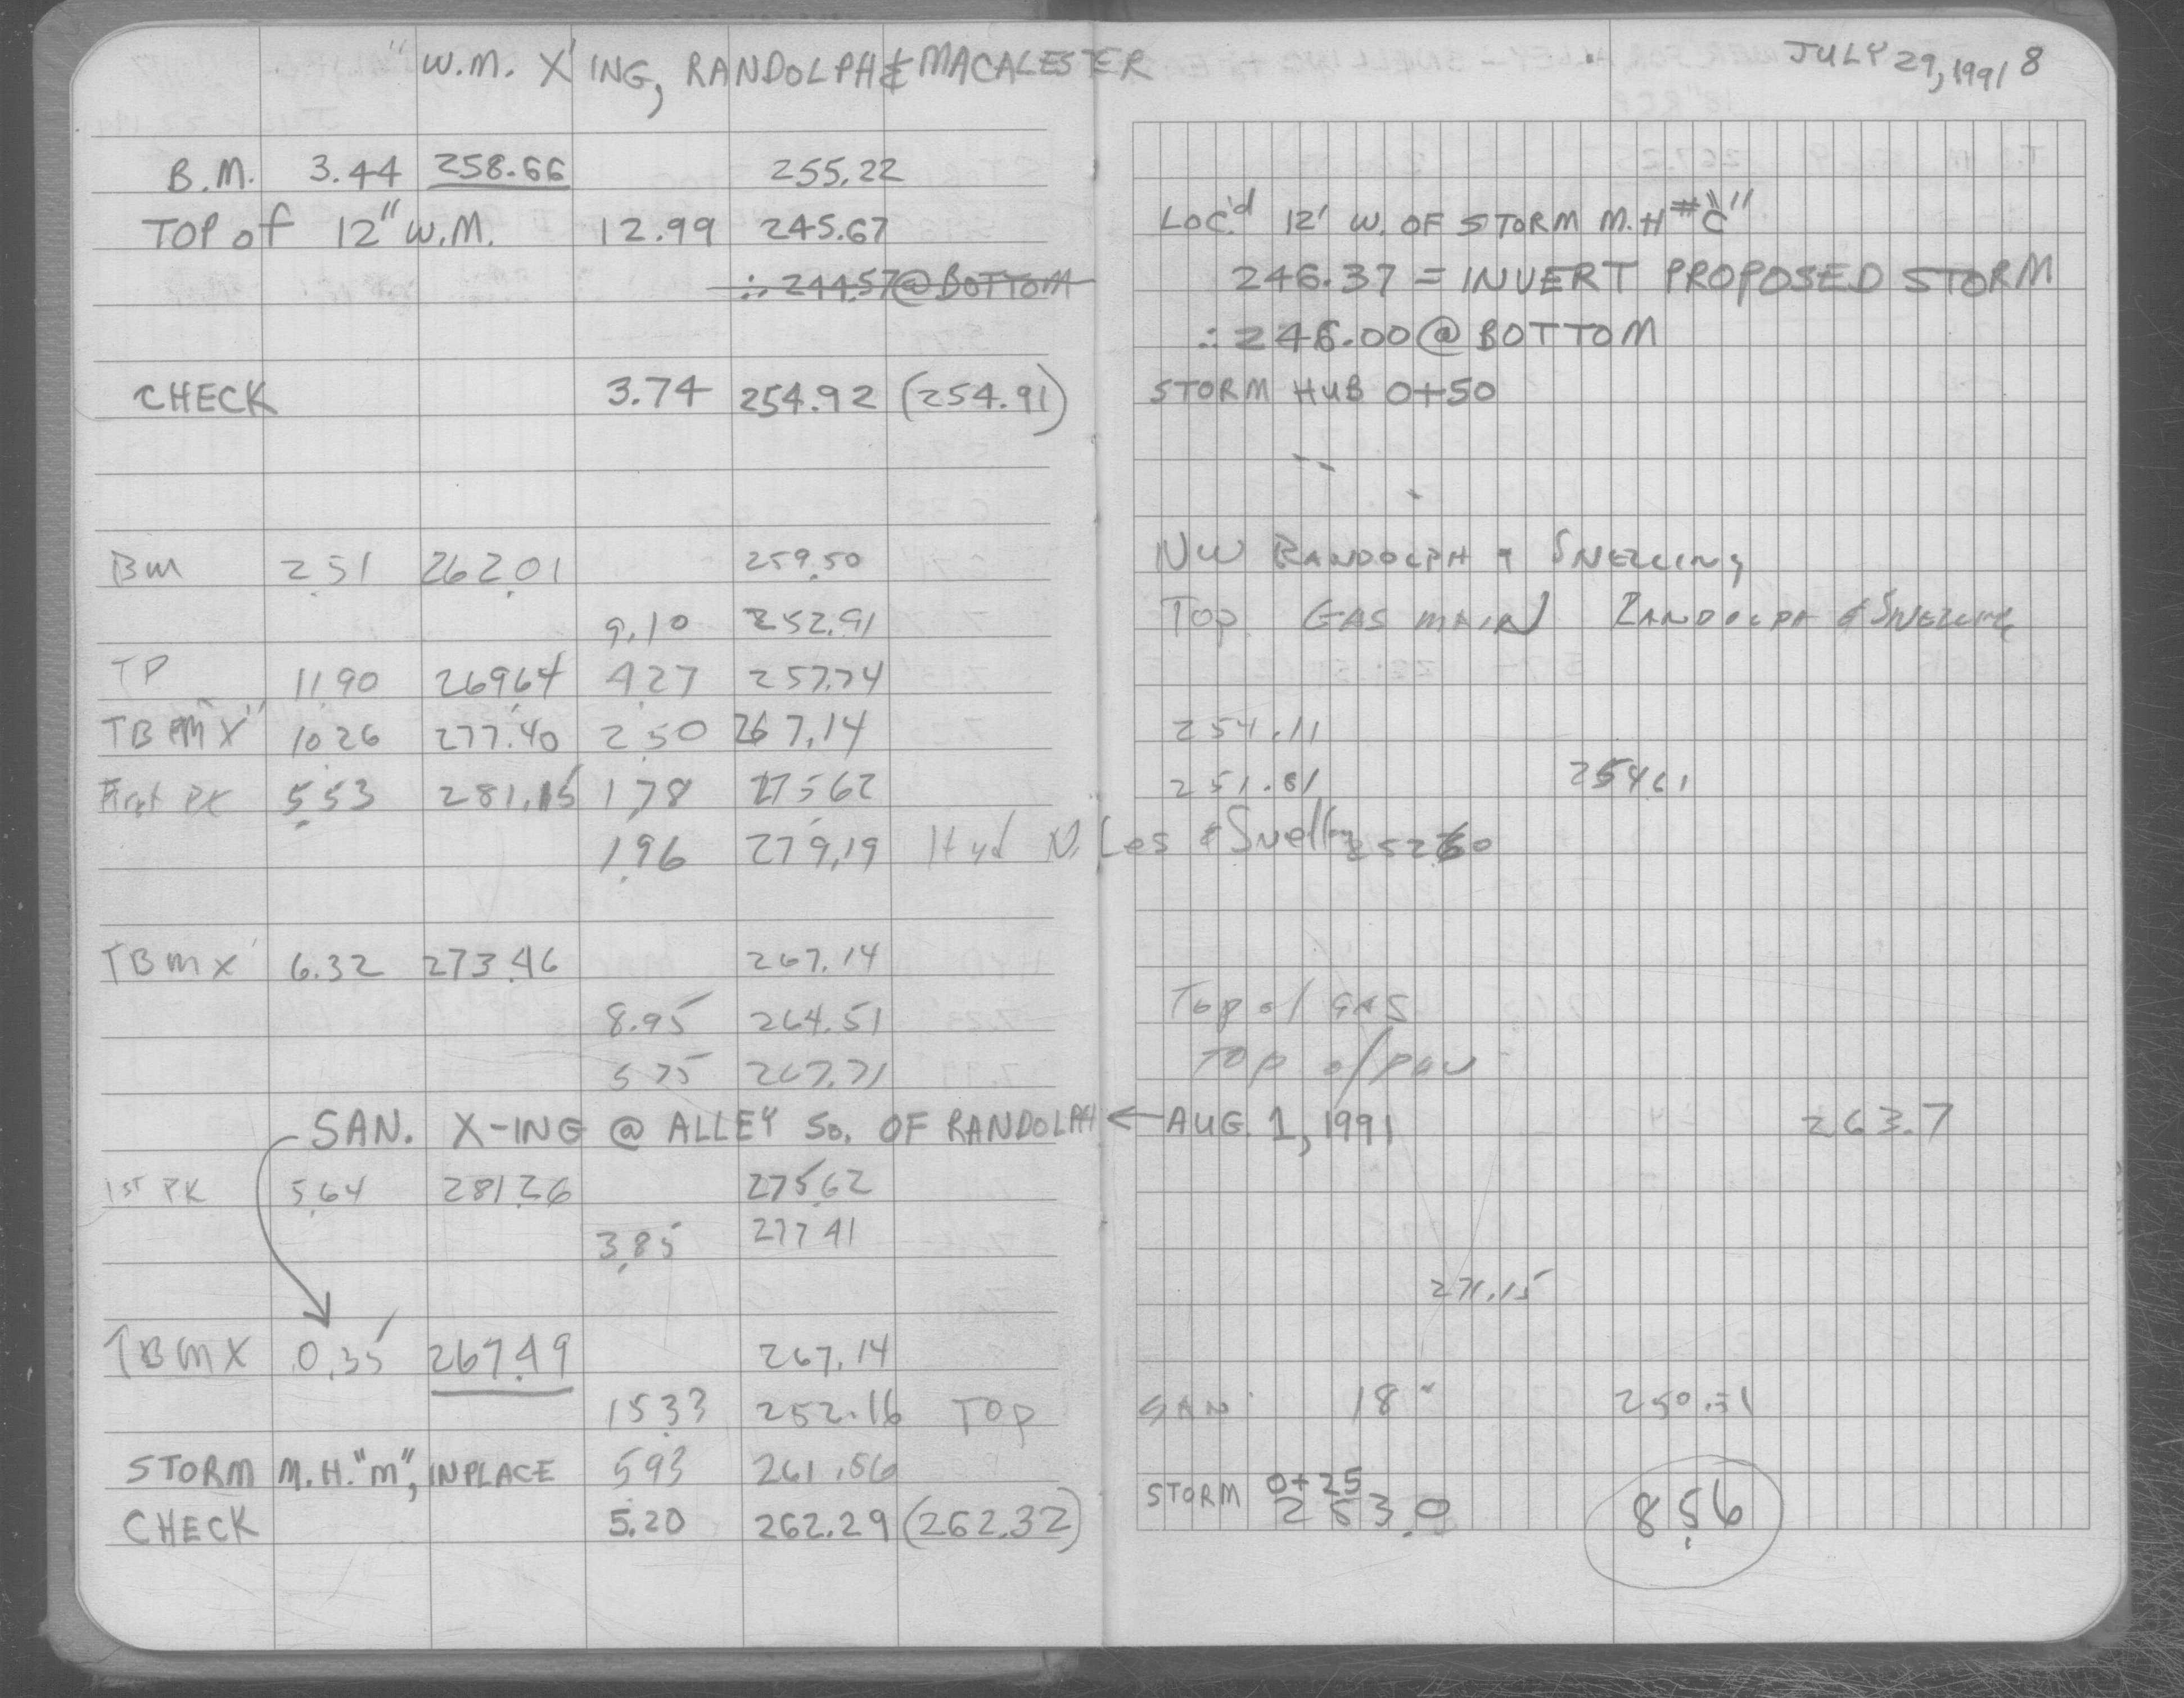 "W.M. X'ING, RANDOLPH & MACALESTER JULY 29, 1991 8
B.M. 3.44 258.66 255.22
TOP of 12" W.M. 12.99 245.67 LOC'd 12' W. OF STORM M.H #"C"
∴ 244.57 @ BOTTOM 246.37 = INVERT PROPOSED STORM
∴ 246.00 @ BOTTOM
CHECK 3.74 254.92 (254.91) STORM HUB 0+50
BM 2.51 262.01 259.50 NW RANDOLPH & SNELLING
9.10 252.91 TOP GAS MAIN RANDOLPH & SNELLING
TP 11.90 269.64 4.27 257.74
TBM "X" 10.26 277.40 2.50 267.14 254.11
First PK 5.53 281.15 1.78 275.62 251.81 254.61
1.96 279.19 Hyd N. Les & Snelling
TBM X 6.32 273.46 267.14
8.95 264.51 Top of GAS
5.75 267.71 TOP of pav
SAN. X-ING @ ALLEY SO. OF RANDOLPH ← AUG. 1, 1991 263.7
1ST PK 5.64 281.26 275.62
3.85 277.41
271.15
TBM X 0.35 267.49 267.14
15.33 252.16 TOP SAN 18" 250.51
STORM M.H. "M", INPLACE 5.93 261.56
CHECK 5.20 262.29 (262.32) STORM 0+25 253.0 8.56